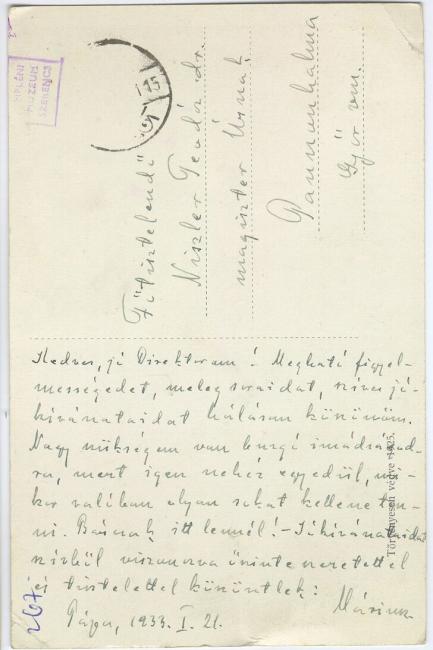 ZEMPLÉNI
MUZEUM
SZERENCS
15
Főtisztelendő
Niszler Teodóz dr.
magiszter Úrnak
Pannonhalma
Győr vm.
Kedves, jó Direktorom! Megható figyel-
mességedet, meleg soraidat, szíves jó-
kívánataidat hálásan köszönöm.
Nagy szükségem van buzgó imádságod-
ra, mert igen nehéz egyedül, mi-
kor valóban olyan sokat kellene ten-
ni. Bárcsak itt lennél! - Jókívánataidat
szívből viszonozva őszinte szeretettel
és tisztelettel köszöntlek:
Pápa, 1933. I. 21.
Törvényesen védve 1925.
267